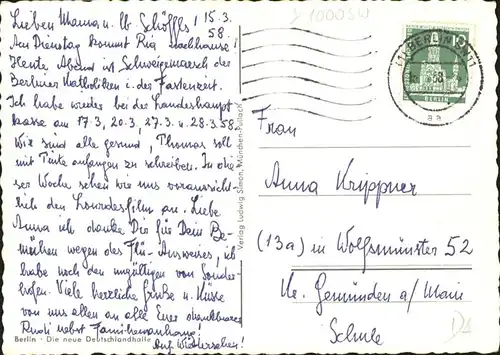 Lieben Mama u. lb. Schöffls! 15.3.
58.
Am Dienstag kommt Ria nachhause!
Heute Abend ist Schweigemarsch der
Berliner Katholiken i. der Fastenzeit.
Ich habe wieder bei der Landeshaupt
kasse am 17.3, 20.3, 27.3 u. 28.3.58.
Wir sind alle gesund, Thomas soll
mit Tinte anfangen zu schreiben. In die
ser Woche sehen wir uns voraussicht-
lich den Lourdesfilm an. Liebe
Anna ich danke Dir für Dein Be-
mühen wegen des Flü-Ausweises, ich
habe noch den ungültigen von Sonder-
hofen. Viele herzliche Grüße u. Küsse
von uns allen an alle Euer dankbarer
Rudi nebst Familienanhang!
Auf Wiedersehen!
Berlin · Die neue Deutschlandhalle
Verlag Ludwig Simon, München-Pullach
1000SW
BERLIN
BERLIN
Frau
Anna Krippner
(13a) in Wolfsmünster 52
Kr. Gemünden a/Main
Schule